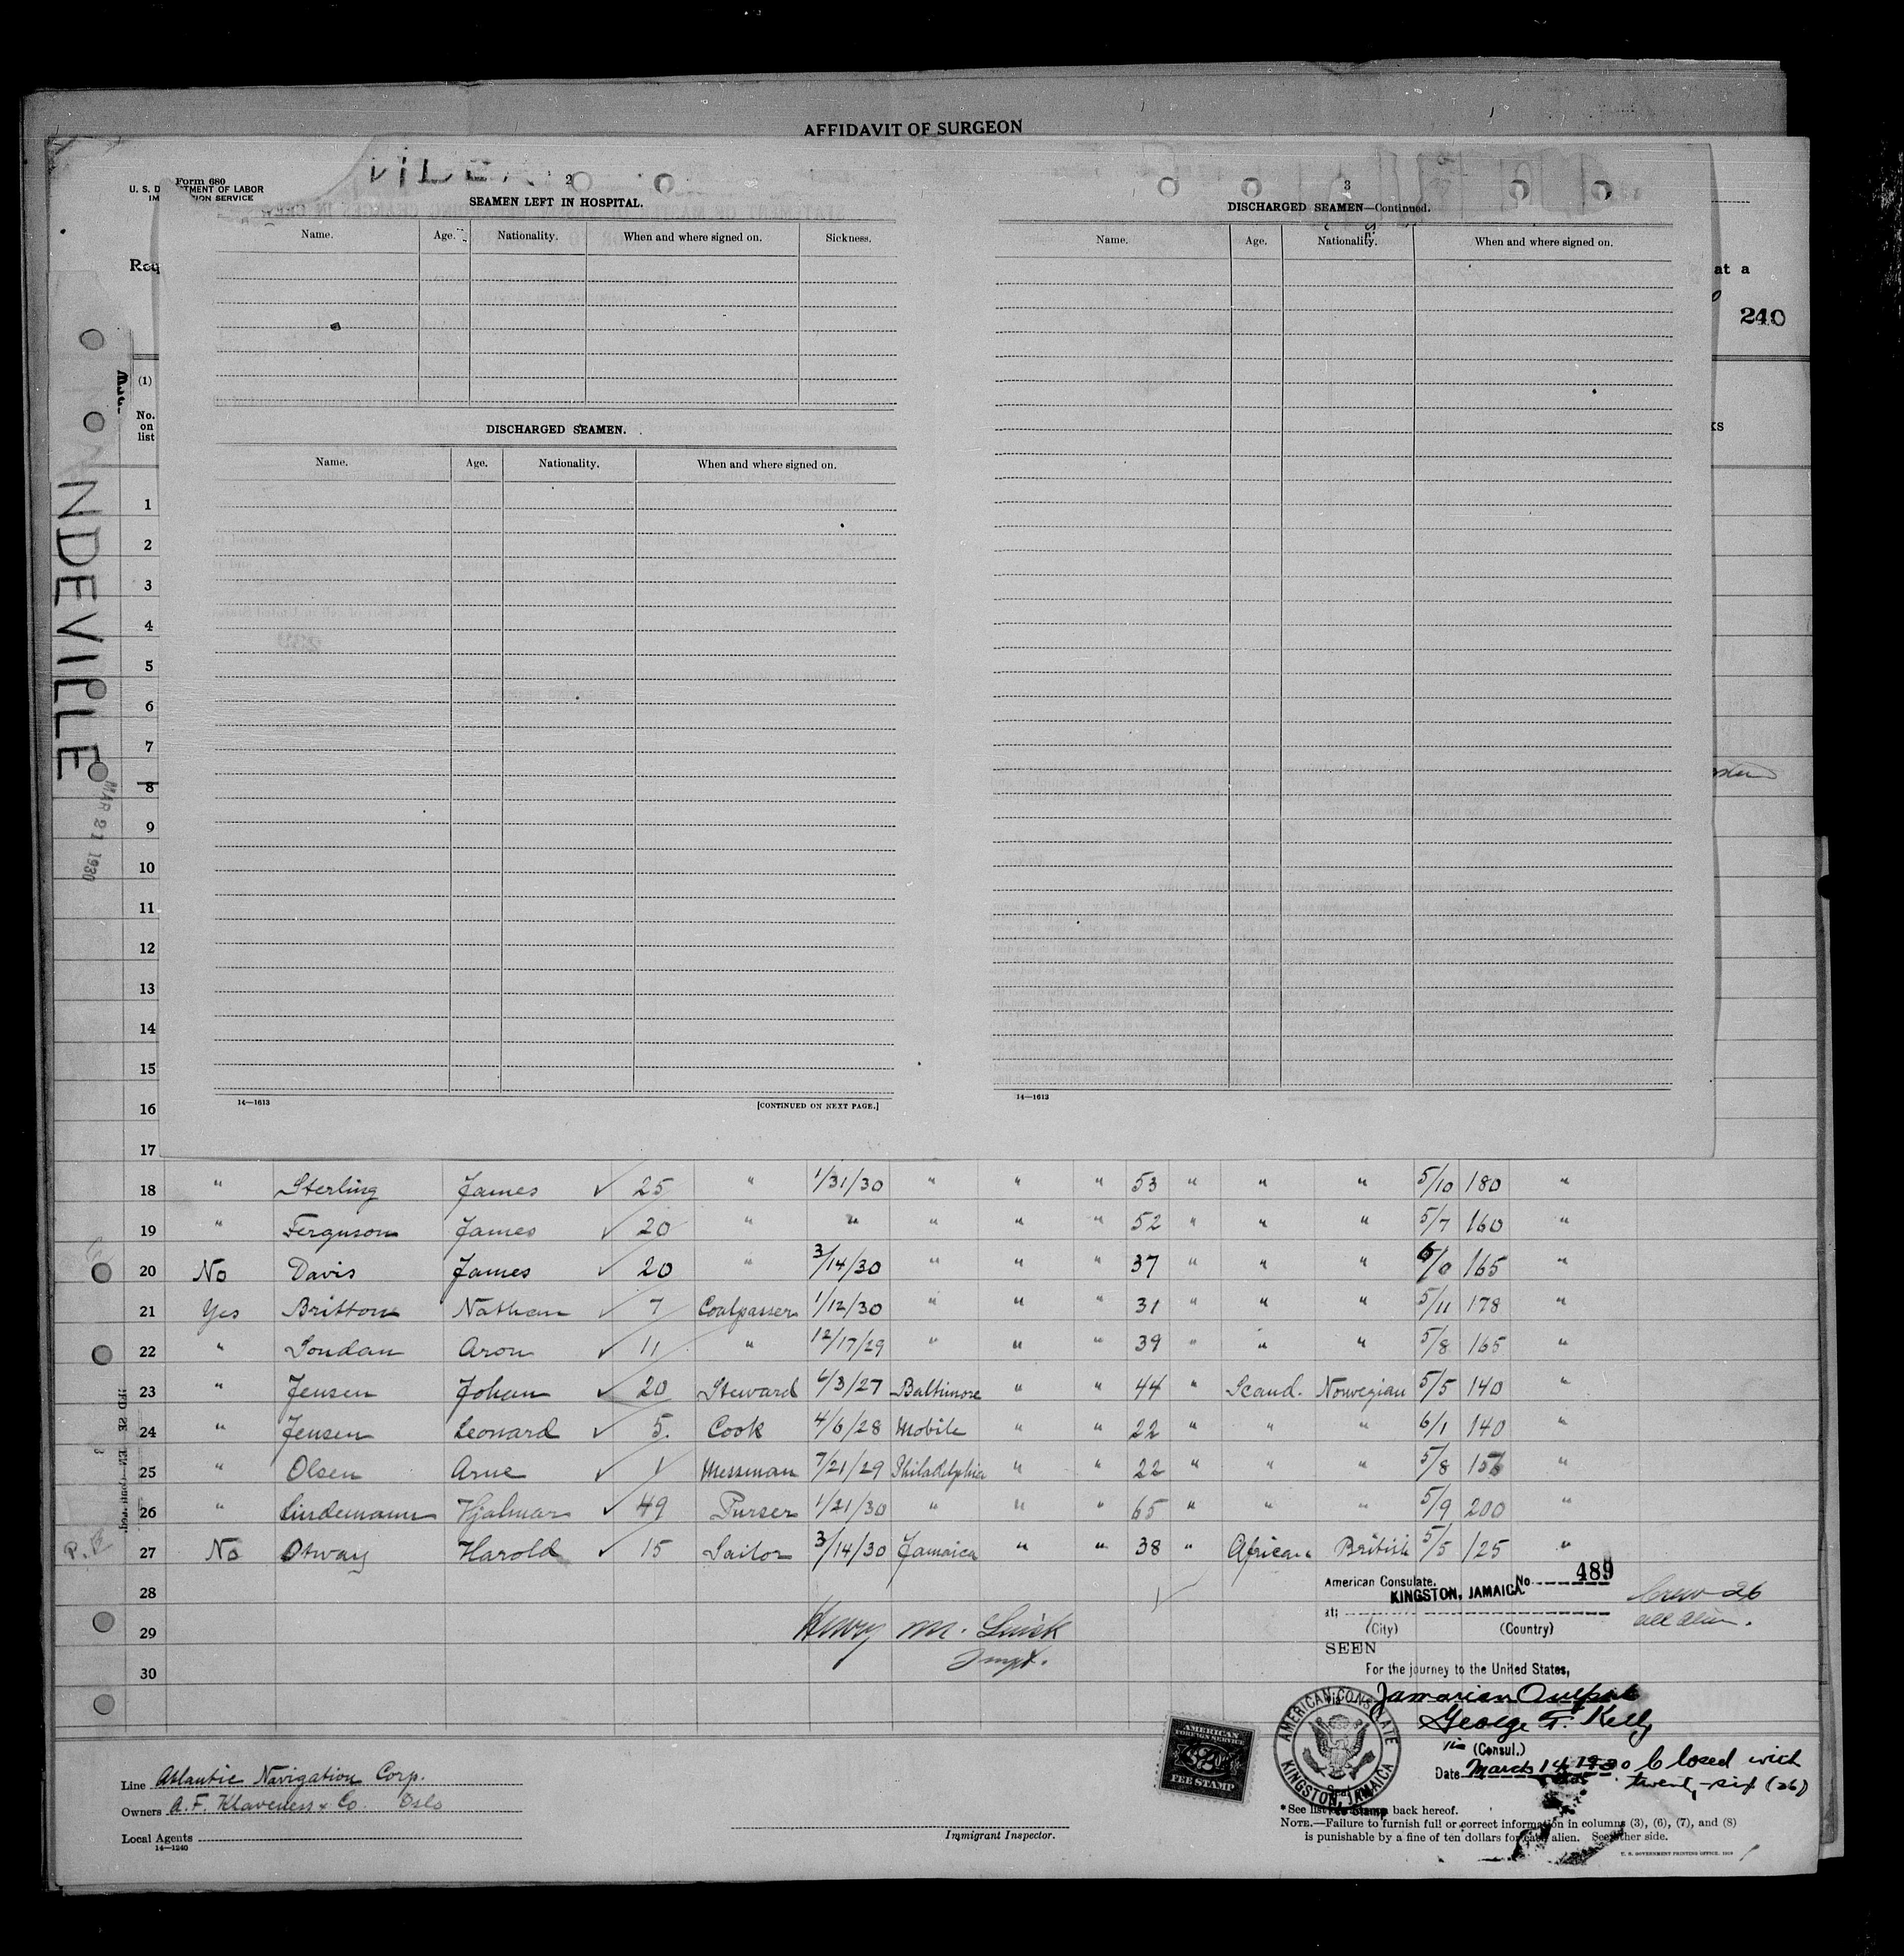 AFFIDAVIT OF SURGEON
Form 680
U. S. D TMENT OF LABOR
IM ION SERVICE
Req
at a
240
(1)
No.
on
list
KS
NDEVILLE
MAR 21 1930
2
SEAMEN LEFT IN HOSPITAL.
Name. Age. Nationality. When and where signed on. Sickness.
DISCHARGED SEAMEN.
Name. Age. Nationality. When and where signed on.
14—1613 [CONTINUED ON NEXT PAGE.]
3
DISCHARGED SEAMEN—Continued.
Name. Age. Nationality. When and where signed on.
14—1613
1
2
3
4
5
6
7
8
9
10
11
12
13
14
15
16
17
18 " Sterling James ✓ 25 " 1/31/30 " " " 53 " " " 5/10 180 "
19 " Ferguson James ✓ 20 " " " " " 52 " " " 5/7 160 "
20 No Davis James ✓ 20 " 3/14/30 " " " 37 " " " 6/0 165 "
21 Yes Britton Nathan ✓ 7 Coalpasser 1/12/30 " " " 31 " " " 5/11 178 "
22 " Londan Aron ✓ 11 " 12/17/29 " " " 39 " " " 5/8 165 "
23 " Jensen Johan ✓ 20 Steward 6/3/27 Baltimore " " 44 " Scand. Norwegian 5/5 140 "
24 " Jensen Leonard ✓ 5. Cook 4/6/28 Mobile " " 22 " " " 6/1 140 "
25 " Olsen Arne ✓ 1 Messman 7/21/29 Philadelphia " " 22 " " " 5/8 "
26 " Lindemann Hjalmar ✓ 49 Purser 1/21/30 " " " 65 " " " 5/9 200 "
P. 27 No Otway Harold ✓ 15 Sailor 3/14/30 Jamaica " " 38 " African British 5/5 125 "
28
29
30
Henry M.
American Consulate. No 489
KINGSTON, JAMAICA
at:
(City) (Country)
Crew 26
all alien.
SEEN
For the journey to the United States,
Jamaican
George F. Kelly
(Consul.)
Date March 14 1930 Closed with
twenty-six (26)
AMERICAN CONSULATE
KINGSTON, JAMAICA
AMERICAN
FOREIGN SERVICE
$2
FEE STAMP
Line Atlantic Navigation Corp.
Owners A. F. Klaveness & Co Oslo
Local Agents
14—1240
Immigrant Inspector.
*See list back hereof.
NOTE.—Failure to furnish full or correct information in columns (3), (6), (7), and (8)
is punishable by a fine of ten dollars for each alien. See other side.
U. S. GOVERNMENT PRINTING OFFICE